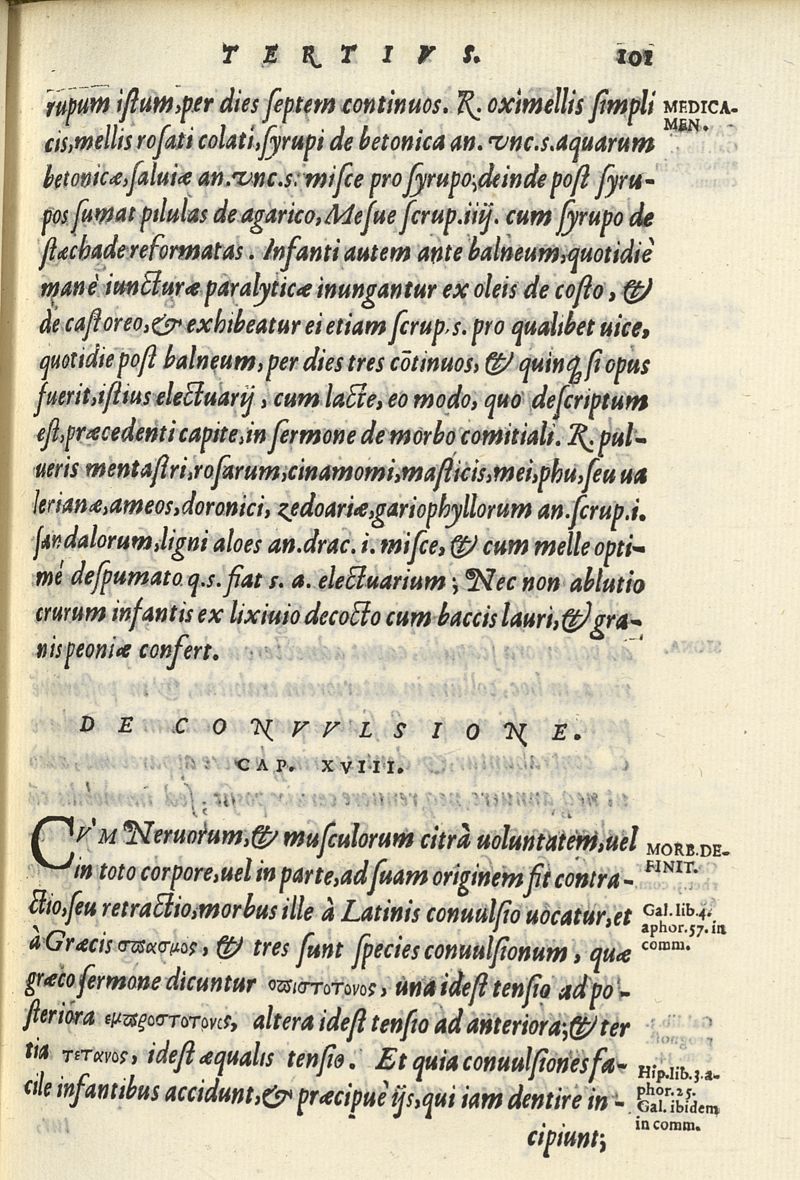 TERTIVS. 101
rupum istum, per dies septem continuos. R. oximellis simpli
MEDICA-
MEN.
cis, mellis rosati colati, syrupi de betonica an. vnc.s. aquarum
betonicæ, saluiæ an. vnc.s. misce pro syrupo; deinde post syru-
pos sumat pilulas de agarico, Mesue scrup.iiij. cum syrupo de
stæchade reformatas. Infanti autem ante balneum, quotidiè
manè iuncturæ paralyticæ inungantur ex oleis de costo, &
de castoreo, & exhibeatur ei etiam scrup.s. pro qualibet uice,
quotidie post balneum, per dies tres cōtinuos, & quinq; si opus
fuerit, istius electuarij, cum lacte, eo modo, quo descriptum
est, præcedenti capite, in sermone de morbo comitiali. R. pul-
ueris mentastri, rosarum, cinamomi, masticis, mei, phu, seu ua
lerianæ, ameos, doronici, zedoariæ, gariophyllorum an. scrup.i.
sandalorum, ligni aloes an. drac. i. misce, & cum melle opti-
mè despumato q.s. fiat s. a. electuarium; Nec non ablutio
crurum infantis ex lixiuio decocto cum baccis lauri, & gra-
nis peoniæ confert.
DE CONVVLSIONE.
CAP. XVIII.
CVM Neruorum, & musculorum citrà uoluntatem, uel
MORB. DE-
FINIT.
in toto corpore, uel in parte, ad suam originem fit contra-
ctio, seu retractio, morbus ille à Latinis conuulsio uocatur, et
Gal. lib. 4.
aphor. 57. in
comm.
à Græcis σπασμος, & tres sunt species conuulsionum, quæ
græco sermone dicuntur οπιστοτονος, una idest tensio ad po-
steriora εμπροστοτονες, altera idest tensio ad anteriora; & ter
tia τετανος, idest æqualis tensio. Et quia conuulsiones fa-
Hip. lib. 3. a-
phor. 25.
Gal. ibidem
in comm.
cile infantibus accidunt, & præcipuè ijs, qui iam dentire in-
cipiunt;